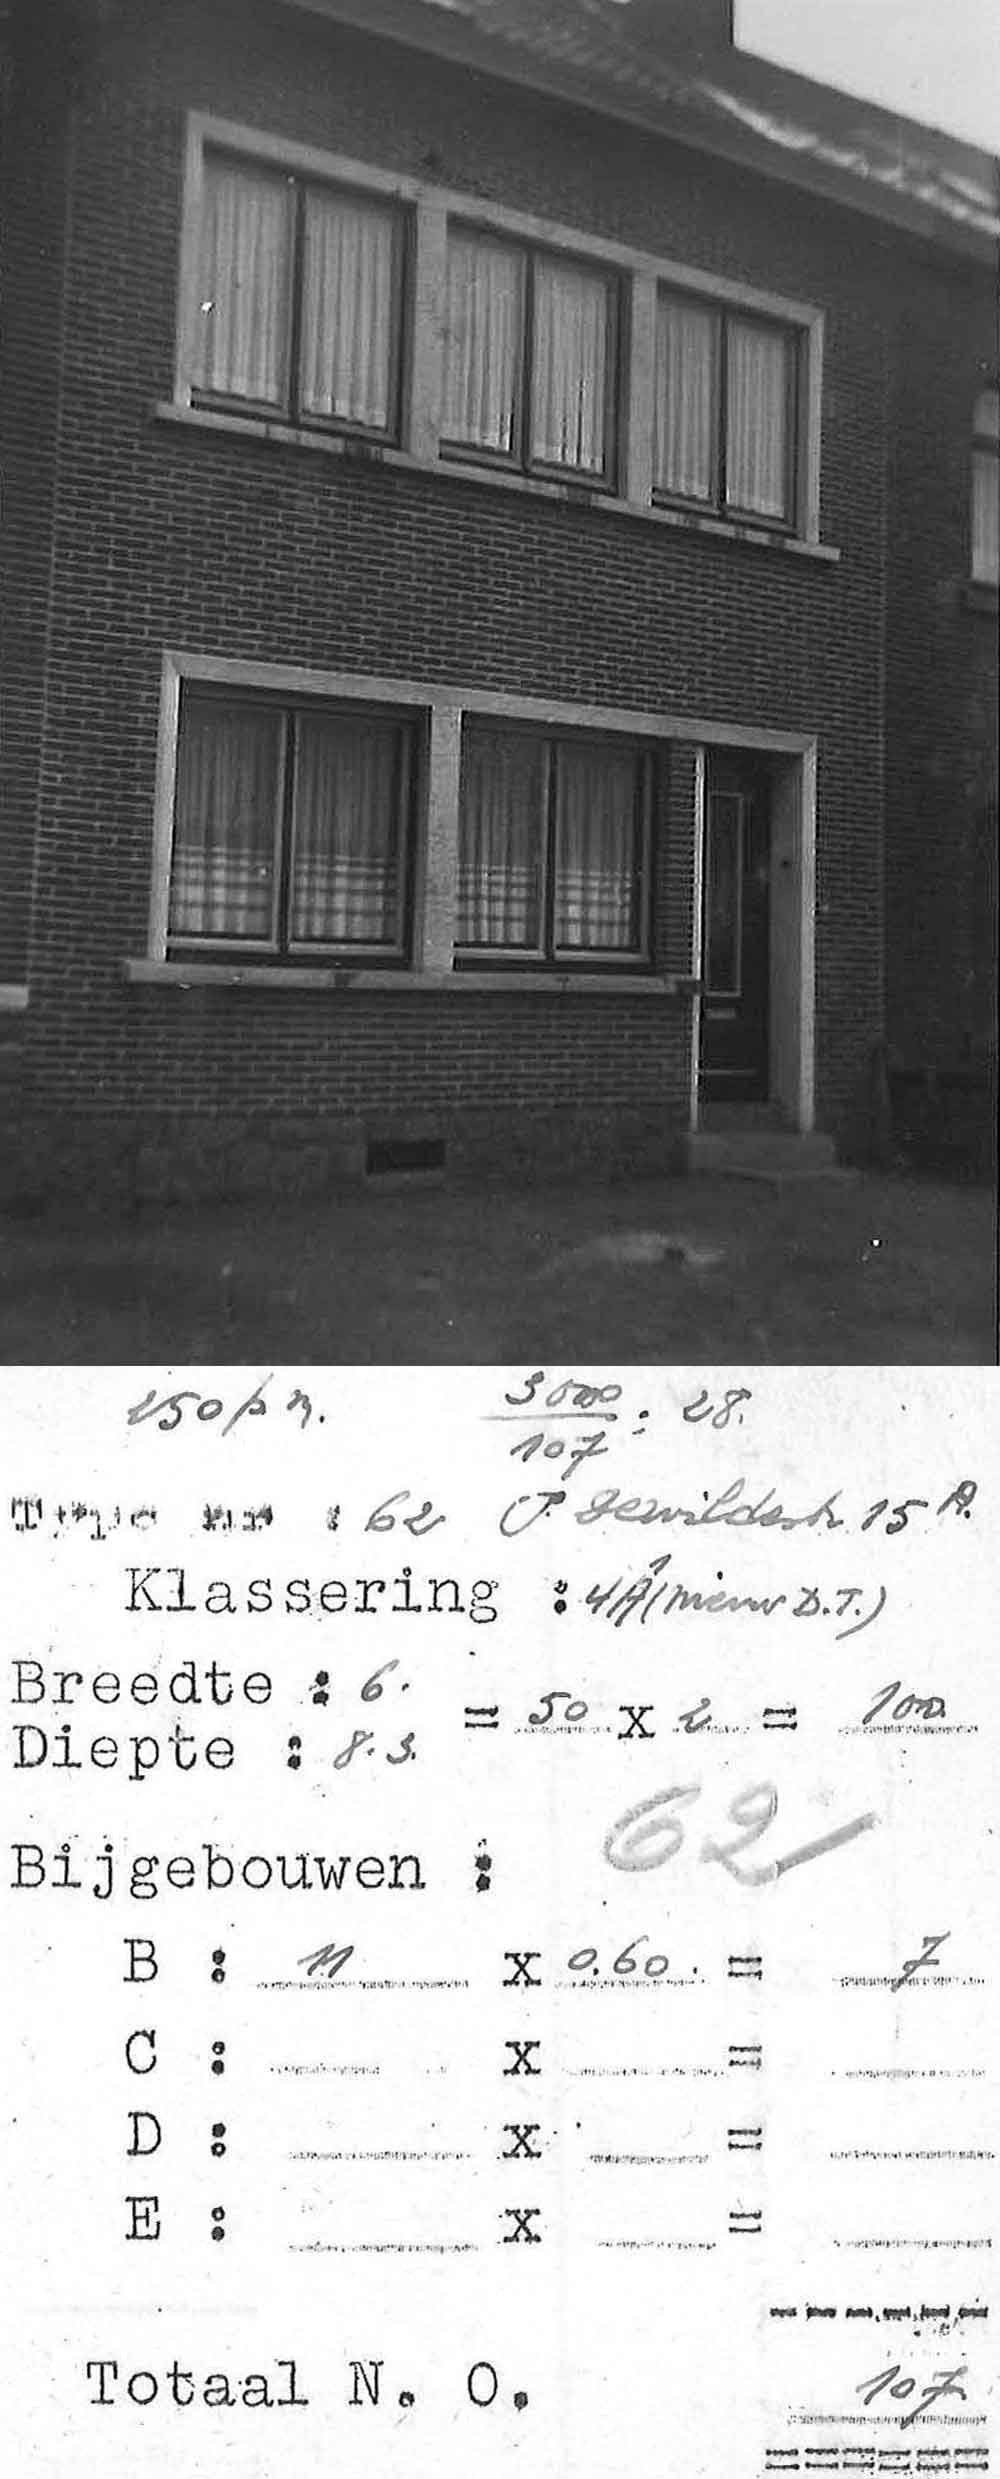 250 p m. 3000/107 : 28.
Type nr : 62 P. Dewildestr 15 A.
Klassering : 4A (nieuw D.T.)
Breedte : 6.
Diepte : 8.3. = 50 x 2 = 100
62
Bijgebouwen :
B : 11 x 0.60. = 7
C : x =
D : x =
E : x =
Totaal N. O. 107